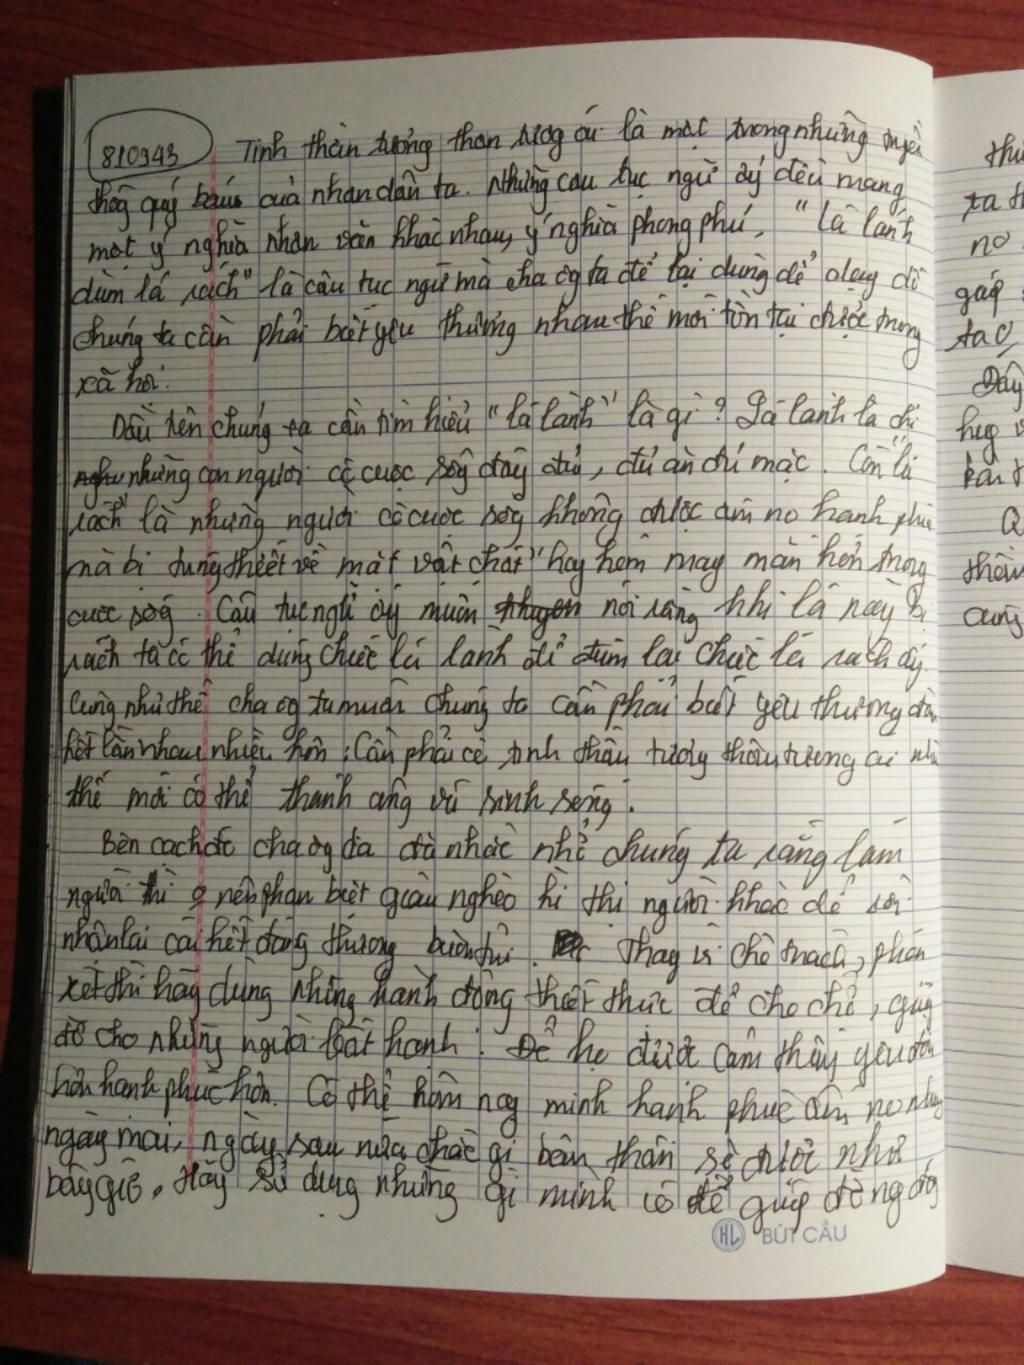 810943
Tinh thần tương thân tương ái là một trong những truyền
thống quý báu của nhân dân ta. Những câu tục ngữ ấy đều mang
một ý nghĩa nhân văn khác nhau, ý nghĩa phong phú, "Lá lành
đùm lá rách" là câu tục ngữ mà cha ôg ta để lại dùng để dạy dỗ
chúng ta cần phải biết yêu thương nhau thế mới tồn tại được trong
xã hội.
Đầu tiên chúng ta cần tìm hiểu "lá lành" là gì? Lá lành là chỉ
những con người có cuộc sốg đầy đủ, đủ ăn đủ mặc. Còn "lá
rách" là những người có cuộc sốg không được ấm no hạnh phúc
mà bị thiếu về mặt vật chất" hay kém may mắn hơn trong
cuộc sốg. Câu tục ngữ ấy muốn nói rằng khi lá này bị
rách ta có thể dùng chiếc lá lành để đùm lại chiếc lá rách ấy.
Cũng như thế cha ôg ta muốn chúng ta cần phải biết yêu thương đoàn
kết lẫn nhau nhiều hơn. Cần phải có tinh thần tương thân tương ái như
thế mới có thể thành công và sinh sống.
Bên cạch đó cha ôg ta đã nhắc nhở chúng ta rằng làm
người thì nên phân biệt giàu nghèo kì thị người khác để rồi
nhận lại cái kết đắng thương buồn tủi. Thay vì chê trách, phán
xét thì hãy dùng những hành động thiết thực để che chở, giúp
đỡ cho những người bất hạnh. Để họ được cảm thấy yêu đời
hơn hạnh phúc hơn. Có thể hôm nay mình hạnh phúc ấm no nhưng
ngày mai, ngày sau nữa chắc gì bản thân sẽ được như
bây giờ. Hãy sử dụng những gì mình có để giúp
HL BÚT CẦU
thầ
ta
nơ
giúp
ta
Đây
Q
thần
cũng